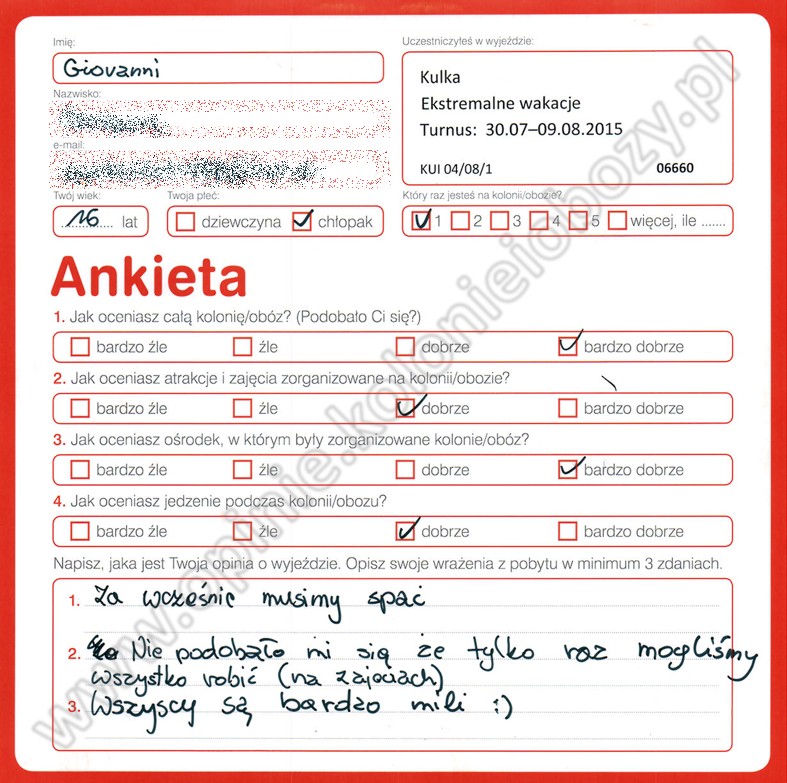 Imię:
Giovanni
Uczestniczyłeś w wyjeździe:
Kulka
Ekstremalne wakacje
Turnus: 30.07–09.08.2015
KUI 04/08/1 06660
Nazwisko:
e-mail:
Twój wiek:
16 lat
Twoja płeć:
dziewczyna chłopak
Który raz jesteś na kolonii/obozie?
1 2 3 4 5 więcej, ile .......
Ankieta
1. Jak oceniasz całą kolonię/obóz? (Podobało Ci się?)
bardzo źle źle dobrze bardzo dobrze
2. Jak oceniasz atrakcje i zajęcia zorganizowane na kolonii/obozie?
bardzo źle źle dobrze bardzo dobrze
3. Jak oceniasz ośrodek, w którym były zorganizowane kolonie/obóz?
bardzo źle źle dobrze bardzo dobrze
4. Jak oceniasz jedzenie podczas kolonii/obozu?
bardzo źle źle dobrze bardzo dobrze
Napisz, jaka jest Twoja opinia o wyjeździe. Opisz swoje wrażenia z pobytu w minimum 3 zdaniach.
1. Za wcześnie musimy spać
2. Nie podobało mi się że tylko raz mogliśmy
wszystko robić (na zajęciach)
3. Wszyscy są bardzo mili :)
www.opinie.kolonieiobozy.pl